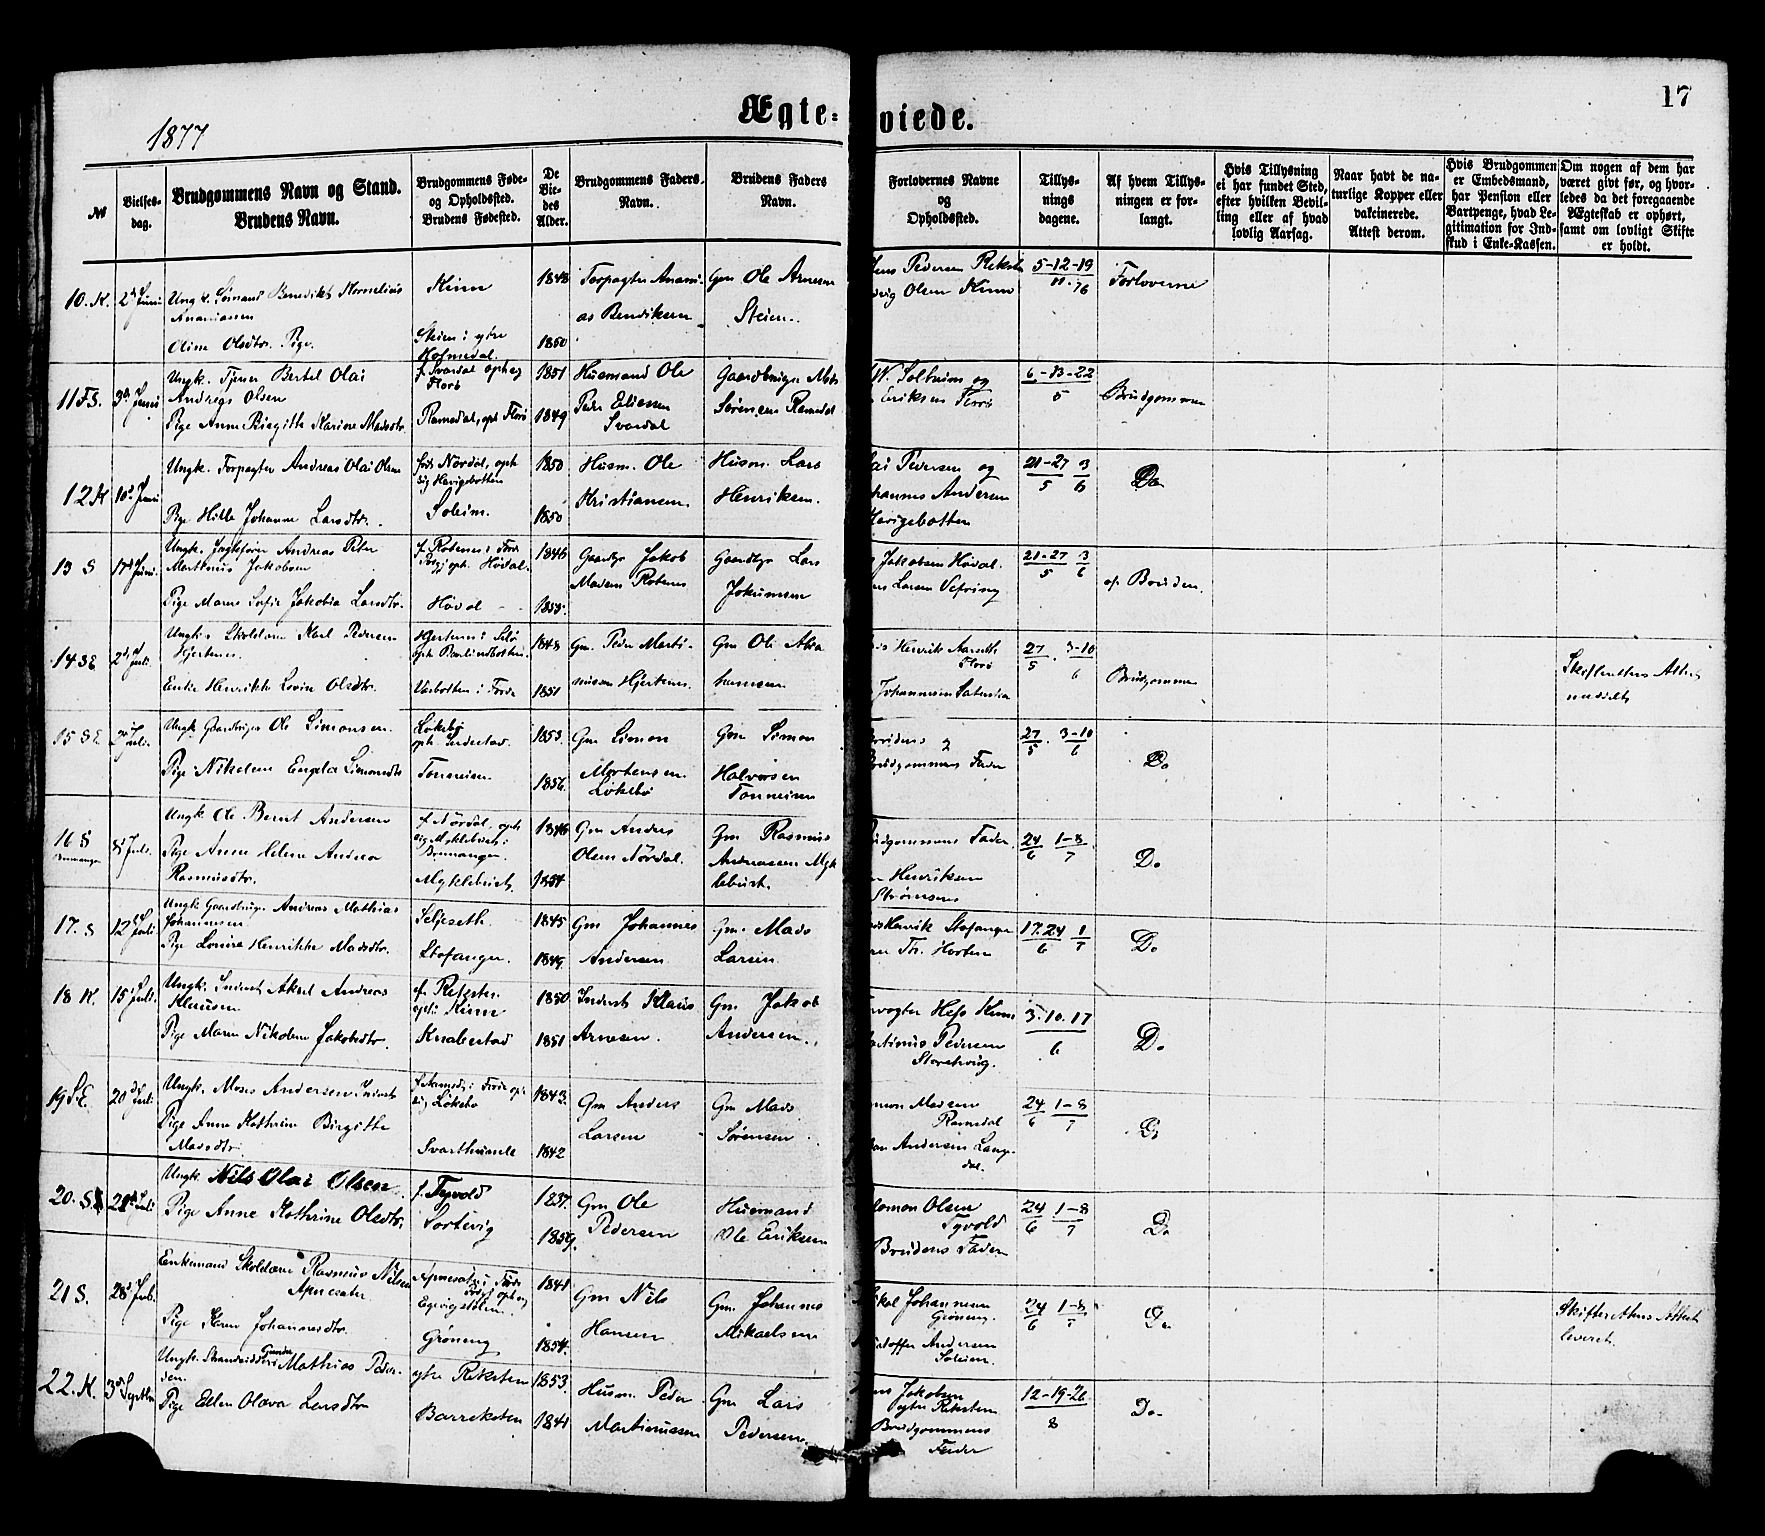 Ægte-viede.
17
1877
№
Vielses-
dag.
Brudgommens Navn og Stand.
Brudens Navn.
Brudgommens Føde-
og Opholdssted.
Brudens Fødested.
De
Vie-
des
Alder.
Brudgommens Faders
Navn.
Brudens Faders
Navn.
Forlovernes Navne
og
Opholdssted.
Tillys-
nings
dagene.
Af hvem Tillys-
ningen er for-
langt.
Hvis Tillysning
ei har fundet Sted,
efter hvilken Bevil-
ling eller af hvad
lovlig Aarsag.
Naar havt de na-
turlige Kopper eller
vakcinerede.
Attest derom.
Hvis Brudgommen
er Embedsmand,
har Pension eller
Vartpenge, hvad Le-
gitimation for Ind-
skud i Enke-Kassen.
Om nogen af dem har
været givt før, og hvor-
ledes da det foregaaende
Ægteskab er ophørt,
samt om lovligt Skifte
er holdt.
10. K. 2d Juni
Ungk. Sømand Benedikt Kornelius
Ananiassen
Oline Olsdtr. Pige.
Kinn
Steien i ytre
Hofmedal.
1848
1850
Torpagter Anani-
as Bendiksen
Gm Ole Arnesen
Steien.
Pedersen Reksten
Olsen Kinn
5-12-19
11. 76
Forloverne
11 F.S. 3d Juni
Ungk. Tjener Bertel Olai
Andreas Olsen
Pige Anne Birgitte Karine Madsdtr.
f. Svardal oph og
Florø
Ramsdal, oph Florø
1851
1849
Huusmand Ole
Peder Eliassen
Svardal
Gaardbruger Mads
Sørensen Ramsdal
W. Solheim og
Eriksen Florø
6-13-22
5
Brudgommen
12 K 10d Juni
Ungk. Forpagter Andreas Olai Olsen
Pige Hille Johanne Larsdtr.
født Nordal, oph
sig Havigbotten
Soleim.
1850
1850
Husm. Ole
Kristiansen.
Husm. Lars
Henriksen.
Pedersen og
Johannes Andersen
Havigebotten
21-27 3
5 6
Do
13 S 17d Juni.
Ungk. Andreas Peter
Marthinus Jakobsen
Pige Maren Sofie Jakobia Larsdtr.
Høval
1846
1855.
Gaardbr Jakob
Madsen
Gaardbr Lars
Jokumsen
Jakobsen Høval.
Larsen Vefring
21-27 3
5 6
af Bruden
14 SE 2d Juli.
Ungk. Skolelærer Karl Pedersen
Hjertenes.
Enke Henrikke Lovise Olsdtr.
Hjertenes i Selø
1848
1851
Gm. Peder Marti-
nussen Hjertenes.
Gm Ole Abra
hamsen
Henrik Aarseth
Florø
Johannesen
27 3-10
5 6
Brudgommen
Skifterettens Attest
15 SE 2d Juli.
Ungk Gaardbruger Ole Simonsen.
Pige Nikoline Engela Simonsdtr
Løkebø
oph Indrestad.
Tonneien.
1853.
1856.
Gm Simon
Mortensen
Løkebø
Gm Simon
Halvorsen
Tonneien
Brudens og
Brudgommens Fader
27 3-10
5 6
Do
16 S 8d Juli.
Ungk Ole Bernt Andersen
Pige Anne Helene Andrea
Rasmusdtr.
f Nordal, oph
sig Myklebust i
Bremanger.
Myklebust.
1846
1854
Gm Anders
Olsen Nordal.
Gm Rasmus
Andreassen Myk
lebust.
Brudgommens Fader
Henriksen
Strømsnes
24 1-8
6 7
Do
17. S 12d Juli
Ungk Gaardbruger Andreas Mathias
Johannesen
Pige Lovise Henrikke Madsdtr.
Seljeseth.
Stofanger.
1845
1849.
Gm Johannes
Andersen
Gm. Mads
Larsen
Henrik Stofanger
Th. Horten
17.24 1
6 7
Do
18 K. 15d Juli.
Ungk. Inderst Aksel Andreas
Klausen
Pige Maren Nikoline Jakobsdtr.
f. Reksten
oph: Kinn
Knabestad
1850
1851
Inderst Klaus
Arnesen.
Gm Jakob
Andersen.
Hess Kinn
Martinus Pedersen
Storehaug.
3.10.17
6
Do
19 S.E. 20d Juli
Ungk. Moses Andersen Inderst
Pige Anne Kathrine Birgitte
Madsdtr.
sig Løkebø
Svarthumle
1843.
1842
Gm Anders
Larsen
Gm Mads
Sørensen.
Madsen
Ramsdal
Andersen Lang-
dal.
24 1-8
6 7
Do
20. S 28d Juli
Ungk. Nils Olai Olsen
Pige Anne Kathrine Olsdtr.
f. Tyvold
Sortevig
1837.
1859.
Gm Ole
Pedersen
Huusmand
Ole Eriksen
Salomon Olsen
Tyvold
Brudens Fader
24 1-8
6 7
Do
21 S. 28d Juli.
Enkemand Skolelærer Rasmus Nilsen
Apnesæter
Pige Karen Johannesdtr.
Apnesæter i Førde
Grøneng
1841
1854.
Gm Nils
Hansen
Gm. Johannes
Mikaelsen
Mikal Johannesen
Grøneng.
Kristoffer Andersen
Soleim.
24 1-8
6 7
Do
Skifterettens Attest
leveret.
22. K. 3d Septbr
Ungk. Strandsidder Gunder Mathias Peder-
sen.
Pige Ellen Olava Larsdtr
ytre Reksten
Barreksten
1853.
1841
Husm. Peder
Martinussen
Gm Lars
Pedersen.
Jakobsen
ytre Reksten
Brudgommens
Fader
12-19-26
8
Do